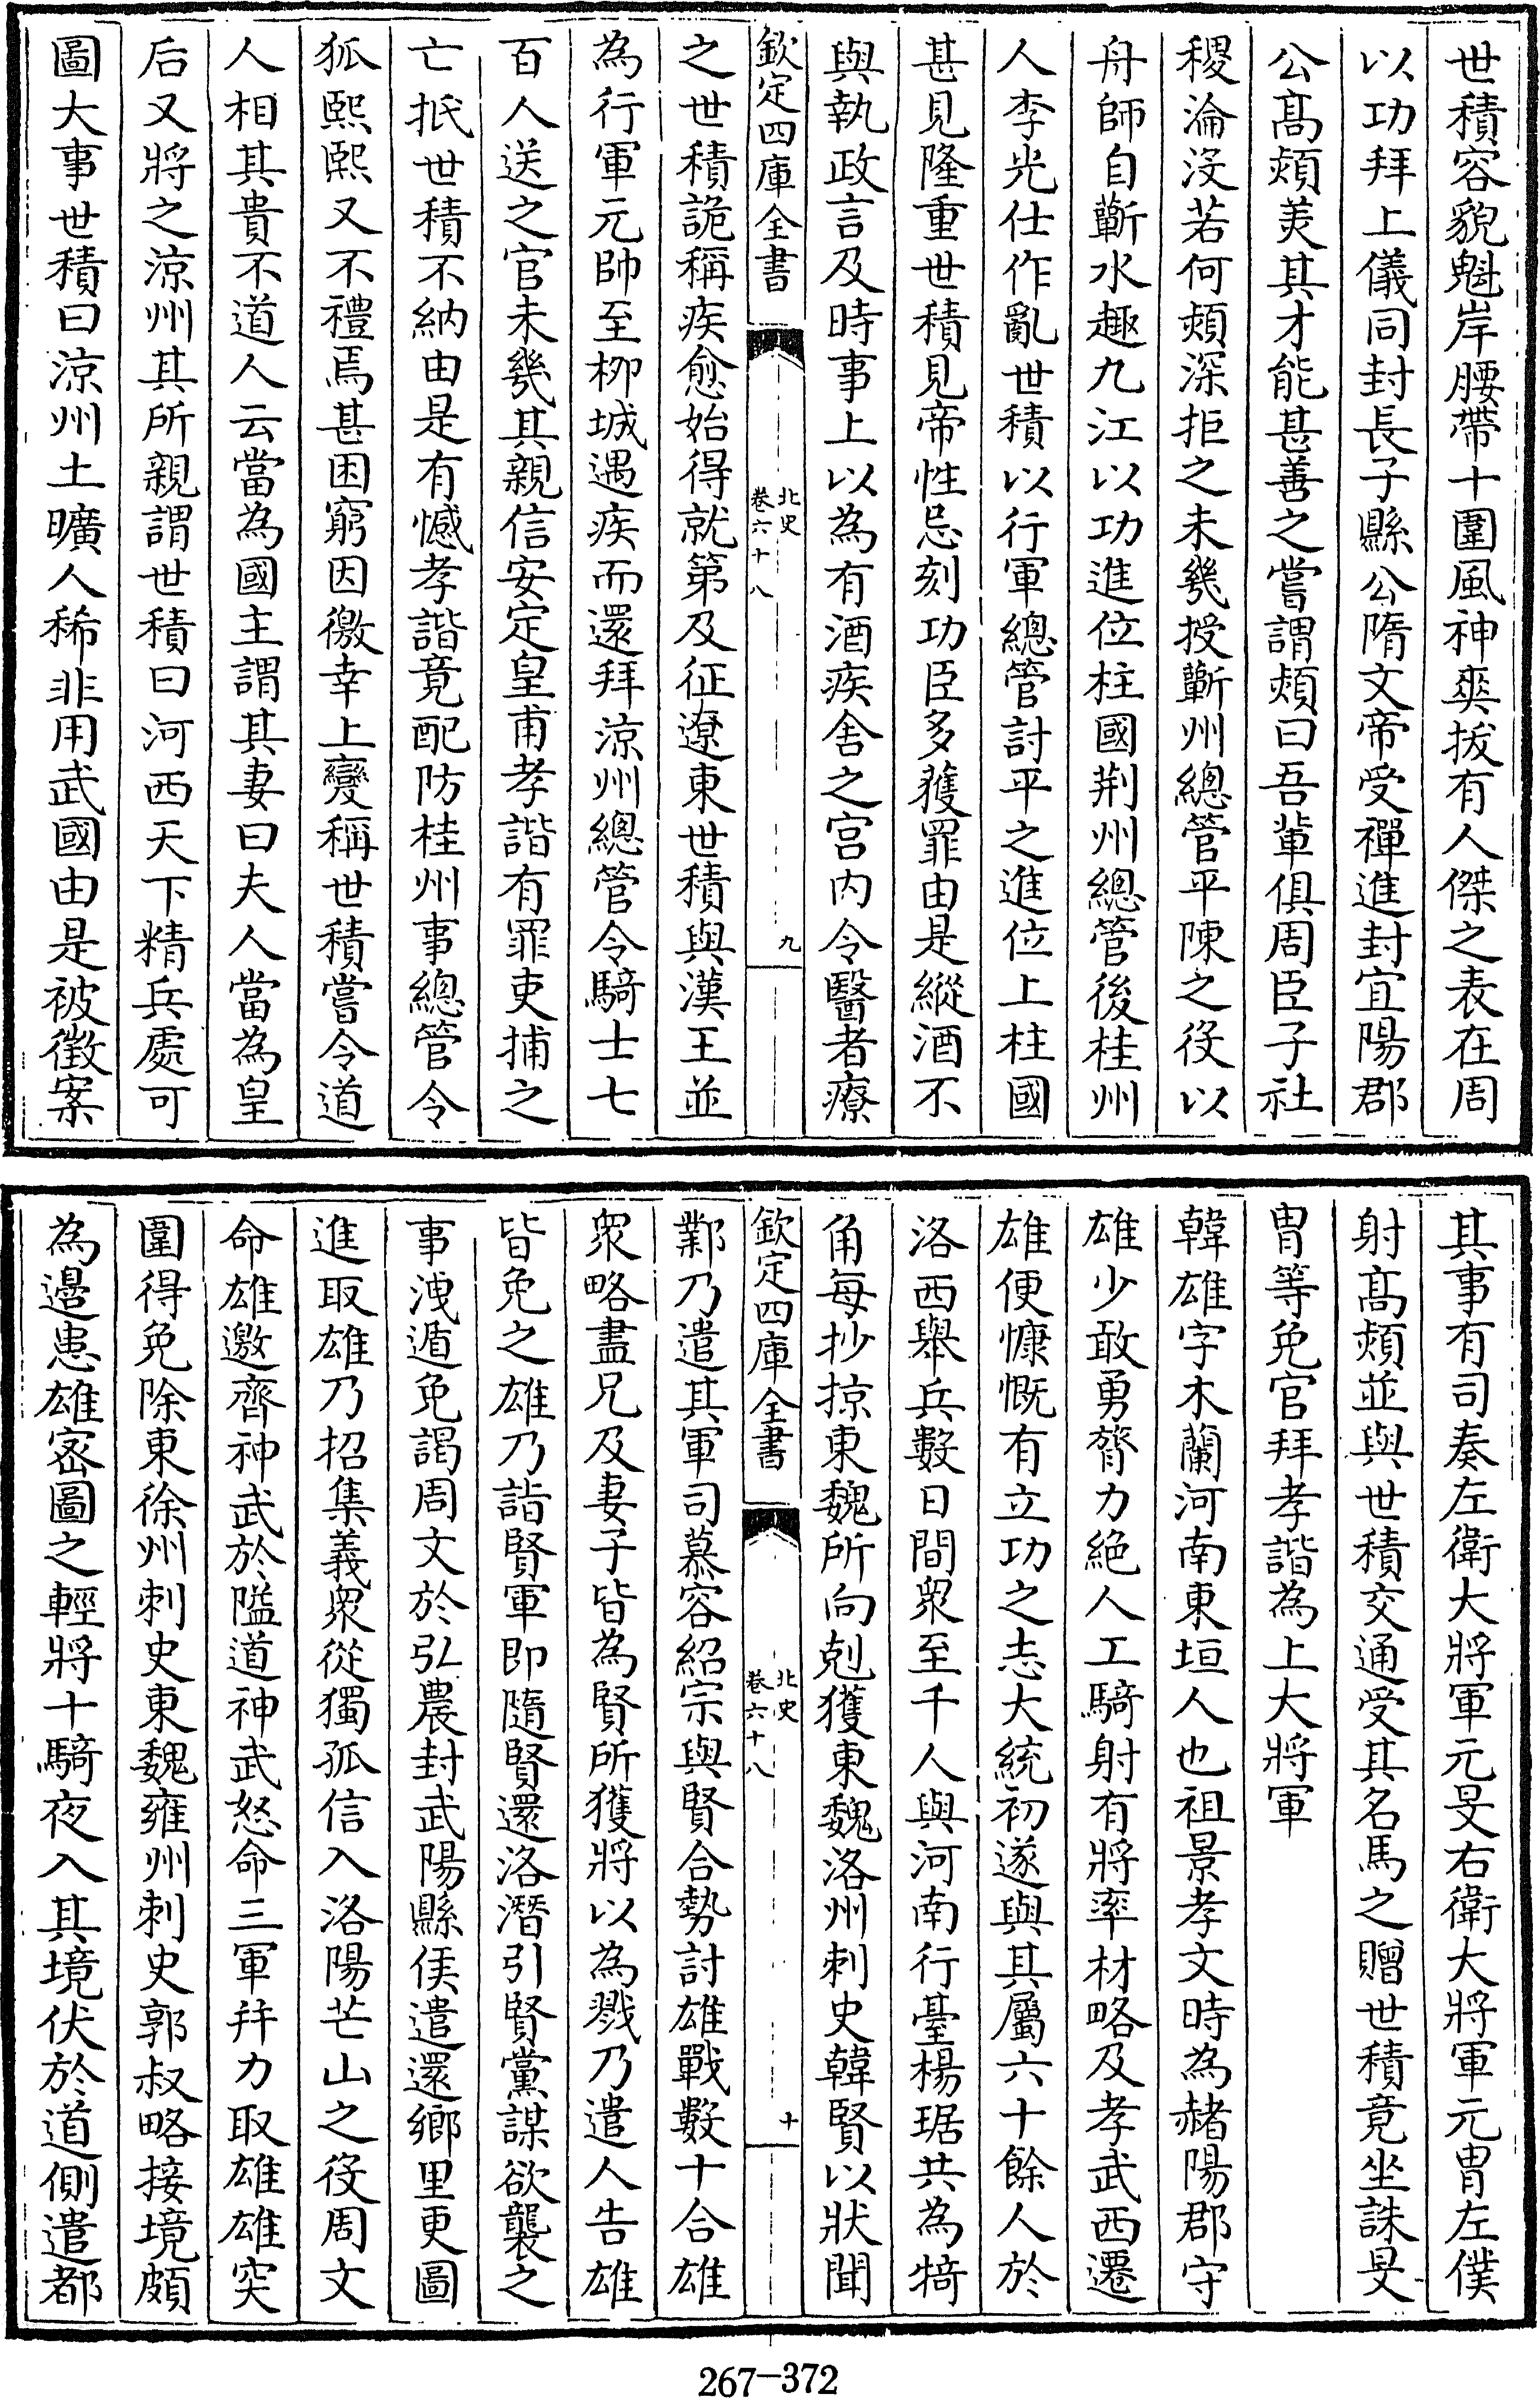 世積容貌魁岸腰帶十圍風神爽拔有人傑之表在周
以功拜上儀同封長子縣公隋文帝受禪進封宜陽郡
公髙熲羙其才能甚善之嘗謂熲曰吾輩俱周臣子社
稷淪没若何熲深拒之未幾授蘄州總管平陳之役以
舟師自蘄水趣九江以功進位柱國荆州總管後桂州
人李光仕作亂世積以行軍總管討平之進位上柱國
甚見隆重世積見帝性忌刻功臣多獲罪由是縱酒不
與執政言及時事上以為有酒疾舍之宫内令醫者療
欽定四庫全書
北史
卷六十八
九
之世積詭稱疾愈始得就第及征遼東世積與漢王並
為行軍元帥至桞城遇疾而還拜涼州總管令騎士七
百人送之官未幾其親信安定皇甫孝諧有罪吏捕之
亡抵世積不納由是有憾孝諧竟配防桂州事總管令
狐熙熙又不禮焉甚困窮因徼幸上變稱世積嘗令道
人相其貴不道人云當為國主謂其妻曰夫人當為皇
后又將之涼州其所親謂世積曰河西天下精兵處可
圖大事世積曰涼州土曠人稀非用武國由是被徴案
其事有司奏左衛大將軍元旻右衛大將軍元胄左僕
射髙熲並與世積交通受其名馬之贈世積竟坐誅旻
胄等免官拜孝諧為上大將軍
韓雄字木蘭河南東垣人也祖景孝文時為赭陽郡守
雄少敢勇膂力絶人工騎射有將率材略及孝武西遷
雄便慷慨有立功之志大統初遂與其屬六十餘人於
洛西舉兵數日間衆至千人與河南行臺楊琚共為犄
角每抄掠東魏所向剋獲東魏洛州刺史韓賢以狀聞
欽定四庫全書
北史
卷六十八
十
鄴乃遣其軍司慕容紹宗與賢合勢討雄戰數十合雄
衆略盡兄及妻子皆為賢所獲將以為戮乃遣人告雄
皆免之雄乃詣賢軍即隨賢還洛潛引賢黨謀欲襲之
事洩遁免謁周文於弘農封武陽縣侯遣還鄉里更圖
進取雄乃招集義衆從獨孤信入洛陽芒山之役周文
命雄邀齊神武於隘道神武怒命三軍幷力取雄雄突
圍得免除東徐州刺史東魏雍州刺史郭叔略接境頗
為邉患雄宻圖之輕將十騎夜入其境伏於道側遣都
267-372